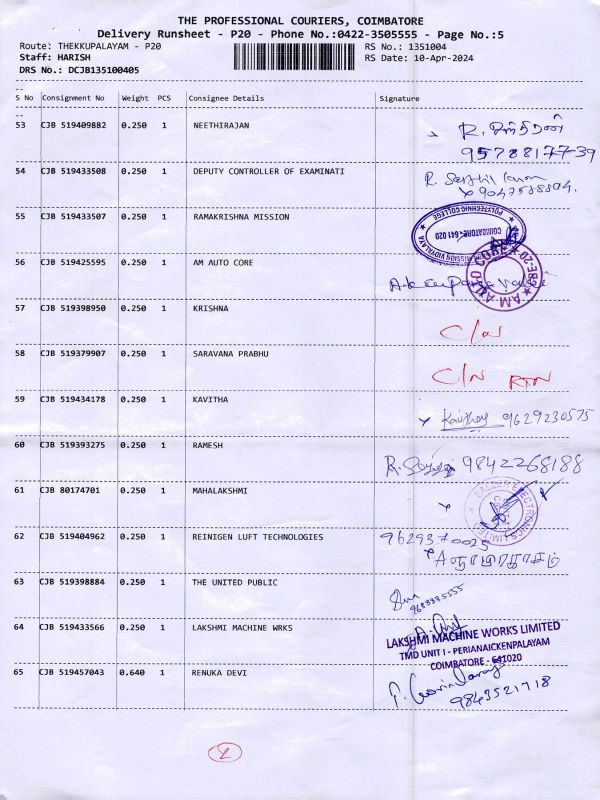 THE PROFESSIONAL COURIERS, COIMBATORE
Delivery Runsheet - P20 - Phone No.:0422-3505555 - Page No.:5
Route: THEKKUPALAYAM - P20 RS No.: 1351004
Staff: HARISH RS Date: 10-Apr-2024
DRS No.: DCJB135100405
S No Consignment No Weight PCS Consignee Details Signature
53 CJB 519409882 0.250 1 NEETHIRAJAN
9578817739
54 CJB 519433508 0.250 1 DEPUTY CONTROLLER OF EXAMINATI
R.
55 CJB 519433507 0.250 1 RAMAKRISHNA MISSION
POLYTECHNIC COLLEGE
COIMBATORE - 641 020
MISSION VIDYALAYA
56 CJB 519425595 0.250 1 AM AUTO CORE
AM AUTO CORE CBE-20
57 CJB 519398950 0.250 1 KRISHNA
C/N
58 CJB 519379907 0.250 1 SARAVANA PRABHU
C/N RTN
59 CJB 519434178 0.250 1 KAVITHA
9629230575
60 CJB 519393275 0.250 1 RAMESH
9842268188
61 CJB 80174701 0.250 1 MAHALAKSHMI
ELECTRONICS LIMITED
62 CJB 519404962 0.250 1 REINIGEN LUFT TECHNOLOGIES
9629370025
63 CJB 519398884 0.250 1 THE UNITED PUBLIC
64 CJB 519433566 0.250 1 LAKSHMI MACHINE WRKS
LAKSHMI MACHINE WORKS LIMITED
TMD UNIT I - PERIANAICKENPALAYAM
COIMBATORE - 641020
65 CJB 519457043 0.640 1 RENUKA DEVI
9843521718
2